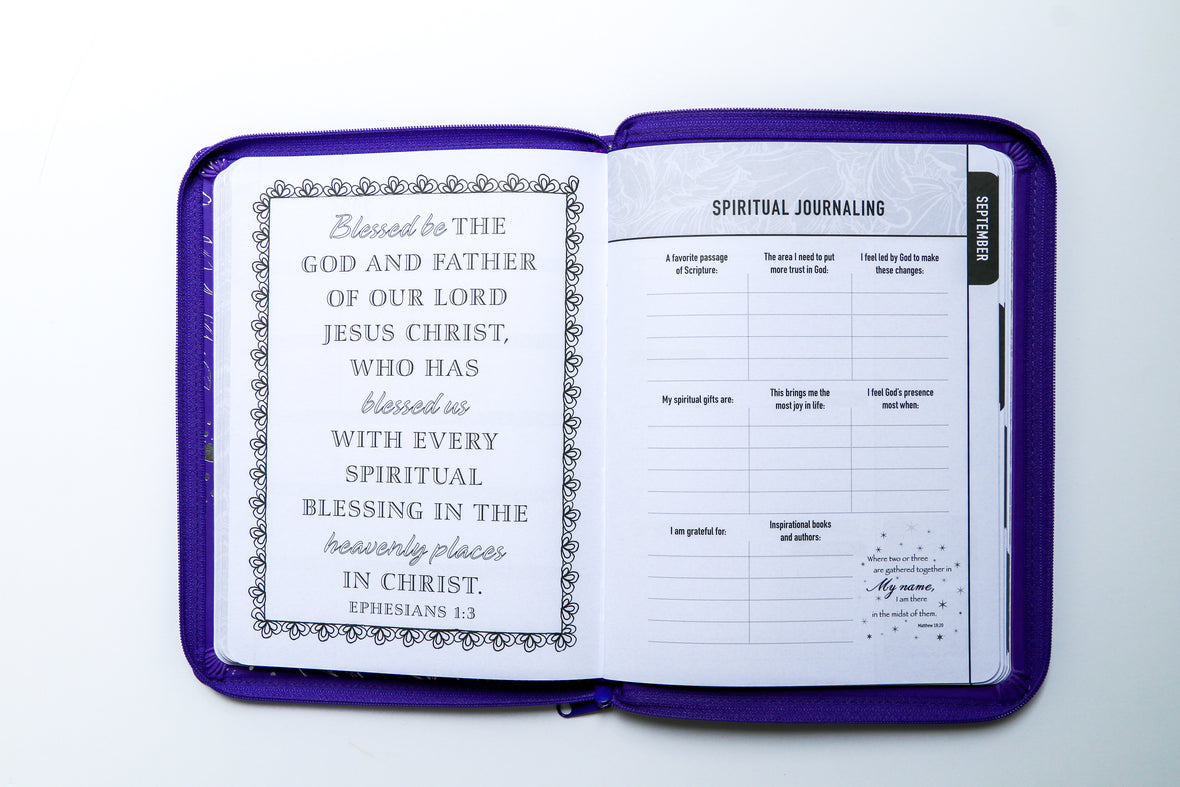 Blessed be THE
GOD AND FATHER
OF OUR LORD
JESUS CHRIST,
WHO HAS
blessed us
WITH EVERY
SPIRITUAL
BLESSING IN THE
heavenly places
IN CHRIST.
EPHESIANS 1:3
SPIRITUAL JOURNALING
SEPTEMBER
A favorite passage
of Scripture:
The area I need to put
more trust in God:
I feel led by God to make
these changes:
My spiritual gifts are:
This brings me the
most joy in life:
I feel God's presence
most when:
I am grateful for:
Inspirational books
and authors:
Where two or three
are gathered together in
My name,
I am there
in the midst of them.
Matthew 18:20